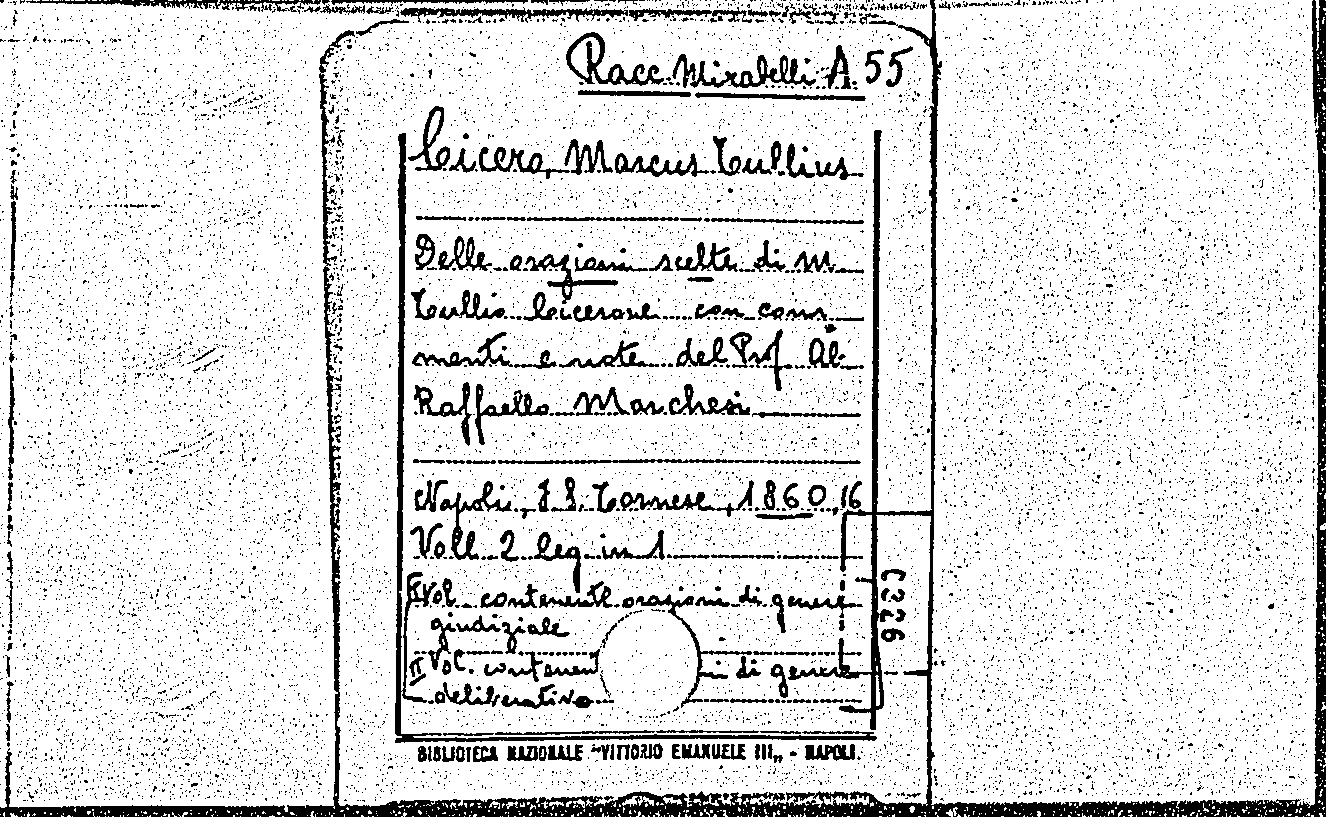 Racc. Mirabelli A 55
Cicero, Marcus Tullius
Delle orazioni scelte di M.
Tullio Cicerone con com-
menti e note del Prof. Ab.
Raffaello Marchesi
Napoli, Tornese, 1860, 16
Voll. 2 leg. in 1
I Vol. contenente orazioni di genere
giudiziale
II Vol. contenen i di genere
deliberativo
C326
BIBLIOTECA NAZIONALE "VITTORIO EMANUELE III„ - NAPOLI.